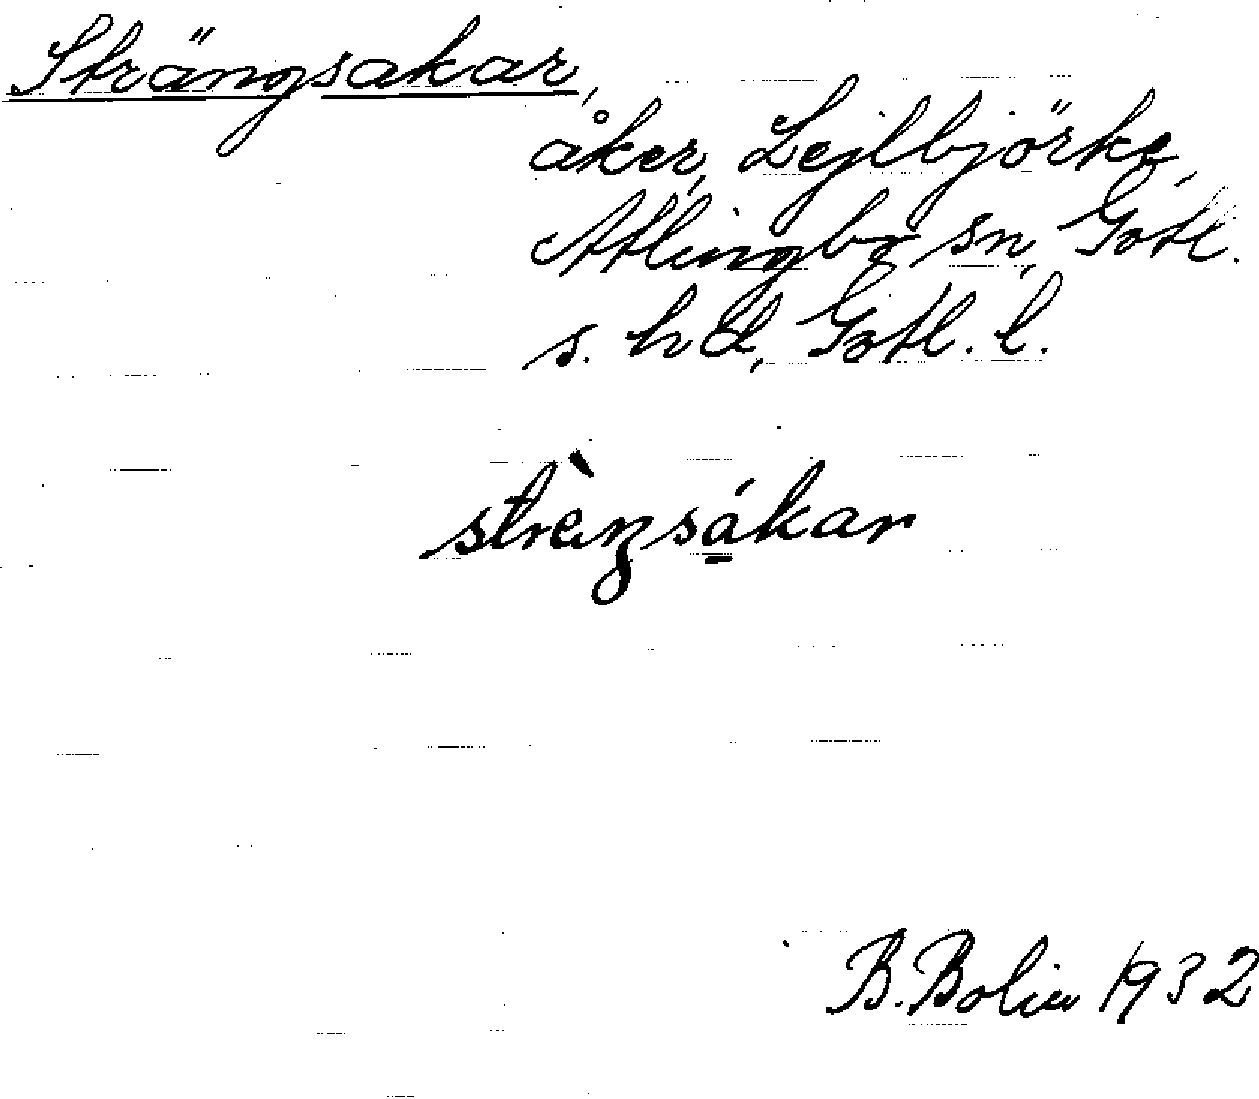 Strängsakar,
åker, Lejlbjörke,
Atlingbo sn, Gotl.
s. hd, Gotl. l.
stre̜ŋsákar
B. Bolin 1932